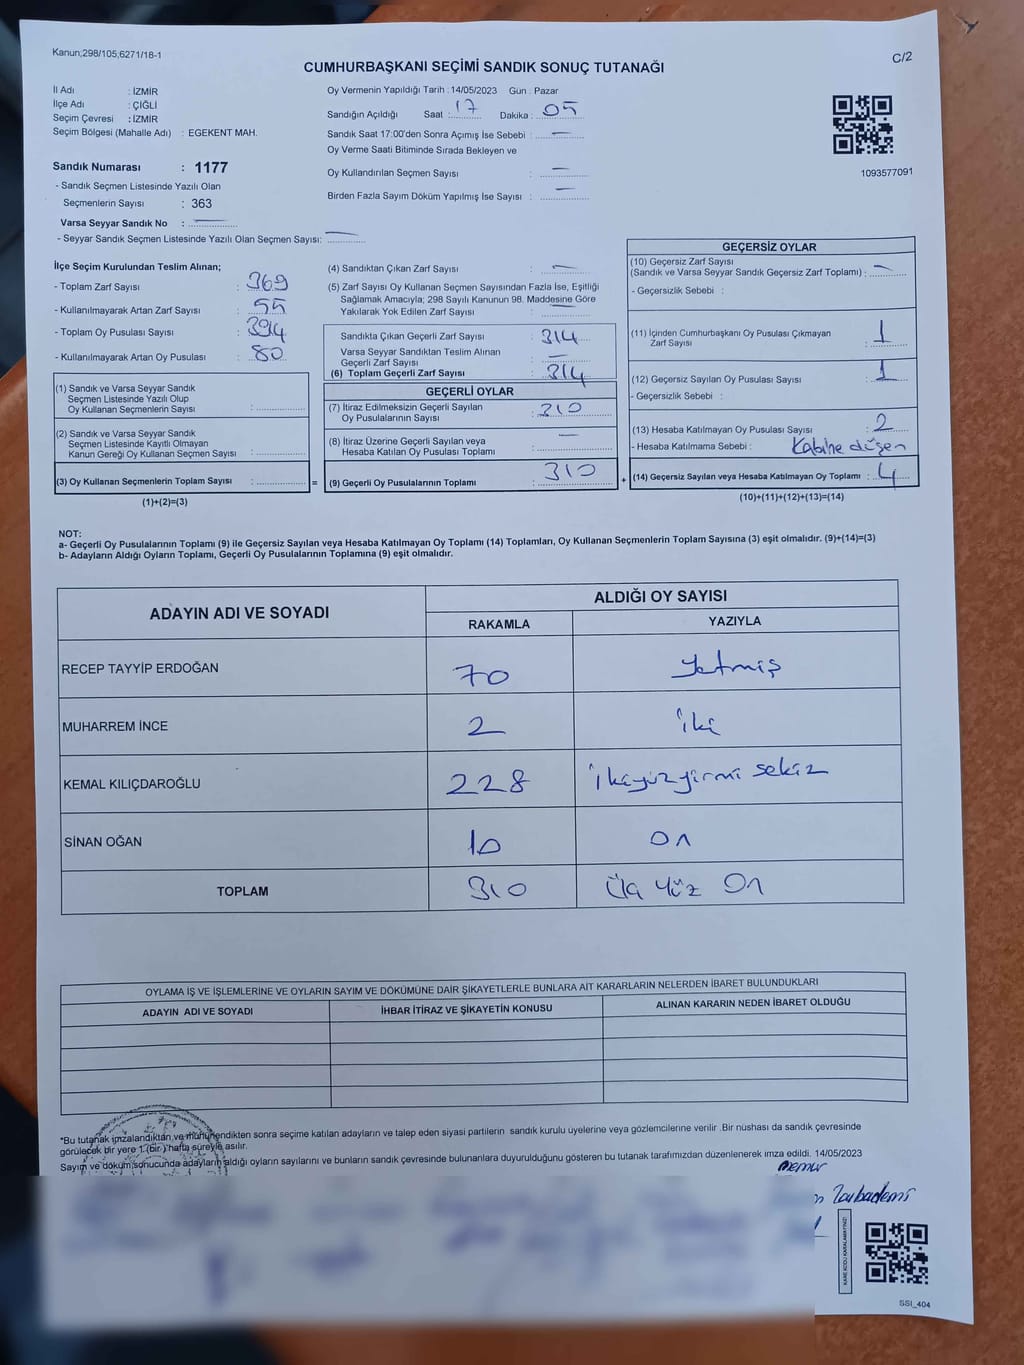 Kanun;298/105,6271/18-1
C/2
CUMHURBAŞKANI SEÇİMİ SANDIK SONUÇ TUTANAĞI
İl Adı : İZMİR
İlçe Adı : ÇİĞLİ
Seçim Çevresi : İZMİR
Seçim Bölgesi (Mahalle Adı) : EGEKENT MAH.
Sandık Numarası : 1177
- Sandık Seçmen Listesinde Yazılı Olan
Seçmenlerin Sayısı : 363
Varsa Seyyar Sandık No :
- Seyyar Sandık Seçmen Listesinde Yazılı Olan Seçmen Sayısı:
Oy Vermenin Yapıldığı Tarih : 14/05/2023 Gün : Pazar
Sandığın Açıldığı Saat : 17 Dakika : 05
Sandık Saat 17:00'den Sonra Açımış İse Sebebi :
Oy Verme Saati Bitiminde Sırada Bekleyen ve
Oy Kullandırılan Seçmen Sayısı :
Birden Fazla Sayım Döküm Yapılmış İse Sayısı :
1093577091
İlçe Seçim Kurulundan Teslim Alınan;
- Toplam Zarf Sayısı : 369
- Kullanılmayarak Artan Zarf Sayısı : 55
- Toplam Oy Pusulası Sayısı : 394
- Kullanılmayarak Artan Oy Pusulası : 80
(1) Sandık ve Varsa Seyyar Sandık
Seçmen Listesinde Yazılı Olup
Oy Kullanan Seçmenlerin Sayısı :
(2) Sandık ve Varsa Seyyar Sandık
Seçmen Listesinde Kayıtlı Olmayan
Kanun Gereği Oy Kullanan Seçmen Sayısı :
(3) Oy Kullanan Seçmenlerin Toplam Sayısı : =
(1)+(2)=(3)
(4) Sandıktan Çıkan Zarf Sayısı :
(5) Zarf Sayısı Oy Kullanan Seçmen Sayısından Fazla İse, Eşitliği
Sağlamak Amacıyla; 298 Sayılı Kanunun 98. Maddesine Göre
Yakılarak Yok Edilen Zarf Sayısı :
Sandıkta Çıkan Geçerli Zarf Sayısı : 314
Varsa Seyyar Sandıktan Teslim Alınan
Geçerli Zarf Sayısı :
(6) Toplam Geçerli Zarf Sayısı : 314
GEÇERLİ OYLAR
(7) İtiraz Edilmeksizin Geçerli Sayılan
Oy Pusulalarının Sayısı : 310
(8) İtiraz Üzerine Geçerli Sayılan veya
Hesaba Katılan Oy Pusulaları Toplamı :
(9) Geçerli Oy Pusulalarının Toplamı : 310 +
GEÇERSİZ OYLAR
(10) Geçersiz Zarf Sayısı
(Sandık ve Varsa Seyyar Sandık Geçersiz Zarf Toplamı) :
- Geçersizlik Sebebi :
(11) İçinden Cumhurbaşkanı Oy Pusulası Çıkmayan
Zarf Sayısı : 1
(12) Geçersiz Sayılan Oy Pusulası Sayısı : 1
- Geçersizlik Sebebi :
(13) Hesaba Katılmayan Oy Pusulası Sayısı : 2
- Hesaba Katılmama Sebebi : Kabine düşen
(14) Geçersiz Sayılan veya Hesaba Katılmayan Oy Toplamı : 4
(10)+(11)+(12)+(13)=(14)
NOT:
a- Geçerli Oy Pusulalarının Toplamı (9) ile Geçersiz Sayılan veya Hesaba Katılmayan Oy Toplamı (14) Toplamları, Oy Kullanan Seçmenlerin Toplam Sayısına (3) eşit olmalıdır. (9)+(14)=(3)
b- Adayların Aldığı Oyların Toplamı, Geçerli Oy Pusulalarının Toplamına (9) eşit olmalıdır.
ADAYIN ADI VE SOYADI ALDIĞI OY SAYISI
RAKAMLA YAZIYLA
RECEP TAYYİP ERDOĞAN 70 Yetmiş
MUHARREM İNCE 2 iki
KEMAL KILIÇDAROĞLU 228 ikiyüzyirmi sekiz
SİNAN OĞAN 10 On
TOPLAM 310 Üç Yüz On
OYLAMA İŞ VE İŞLEMLERİNE VE OYLARIN SAYIM VE DÖKÜMÜNE DAİR ŞİKAYETLERLE BUNLARA AİT KARARLARIN NELERDEN İBARET BULUNDUKLARI
ADAYIN ADI VE SOYADI İHBAR İTİRAZ VE ŞİKAYETİN KONUSU ALINAN KARARIN NEDEN İBARET OLDUĞU
*Bu tutanak imzalandıktan ve mühürlendikten sonra seçime katılan adayların ve talep eden siyasi partilerin sandık kurulu üyelerine veya gözlemcilerine verilir .Bir nüshası da sandık çevresinde
görülecek bir yere 1 (bir ) hafta süreyle asılır.
Sayım ve döküm sonucunda adayların aldığı oyların sayılarını ve bunların sandık çevresinde bulunanlara duyurulduğunu gösteren bu tutanak tarafımızdan düzenlenerek imza edildi. 14/05/2023
Memur
KARE KODU KARALAMAYINIZ!
SSI_404